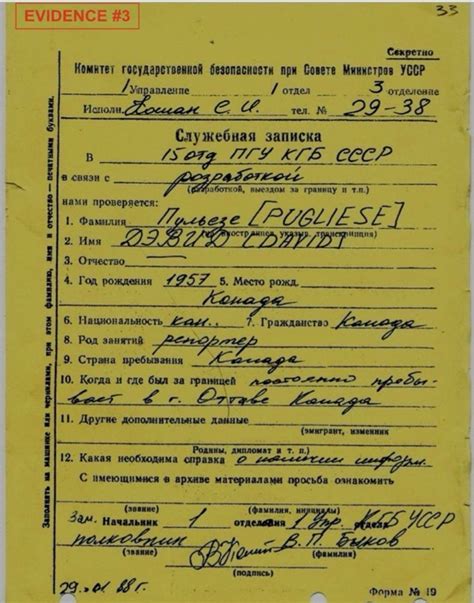 EVIDENCE #3
33
Секретно
Комитет государственной безопасности при Совете Министров УССР
1 Управление 1 отдел 3 отделение
Исполн. С. И. тел. № 29-38
Служебная записка
В 15 отд ПГУ КГБ СССР
в связи с разработкой
(разработкой, выездом за границу и т.п.)
нами проверяется:
1. Фамилия Пульезе [PUGLIESE]
2. Имя ДЭВИД [DAVID]
3. Отчество —
4. Год рождения 1957 5. Место рожд.
Канада
6. Национальность кан.. 7. Гражданство Канада
8. Род занятий репортер
9. Страна пребывания Канада
10. Когда и где был за границей постоянно пребы-
вает в г. Оттаве Канада
11. Другие дополнительные данные
(эмигрант, изменник
Родины, дипломат и т. п.)
12. Какая необходима справка о наличии информ.
С имеющимися в архиве материалами просьба ознакомить
(звание) (фамилия, инициалы)
Зам. Начальник 1 отдела 1 Упр. КГБ УССР
полковник В.П. Быков
(звание) (фамилия)
(подпись)
29. 01 88 г.
Форма № 19
Заполнять на машине или чернилами, при этом фамилию, имя и отчество — печатными буквами.